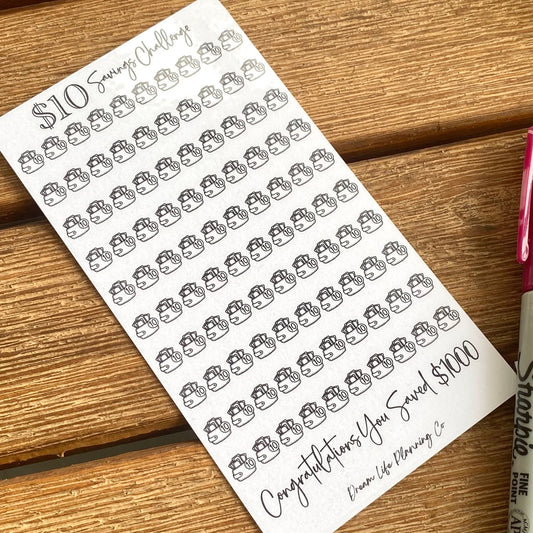 $10 Savings Challenge
Congratulations You Saved $1000
Dream Life Planning Co
Sharpie
FINE
POINT